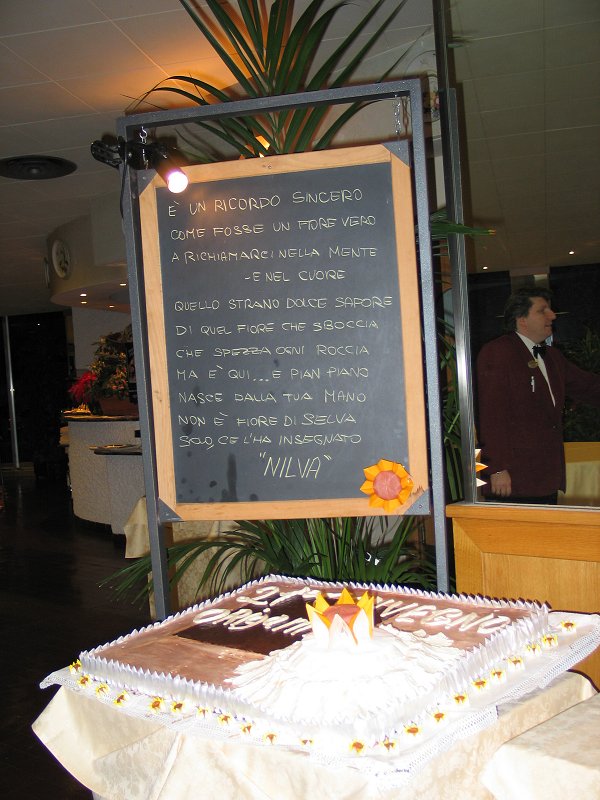 È UN RICORDO SINCERO
COME FOSSE UN FIORE VERO
A RICHIAMARCI NELLA MENTE
- E NEL CUORE
QUELLO STRANO DOLCE SAPORE
DI QUEL FIORE CHE SBOCCIA
CHE SPEZZA OGNI ROCCIA
MA E' QUI... E PIAN PIANO
NASCE DALLA TUA MANO
NON È FIORE DI SELVA
SOLO, CE L'HA INSEGNATO
"NILVA"
21° CONVEGNO
Origami